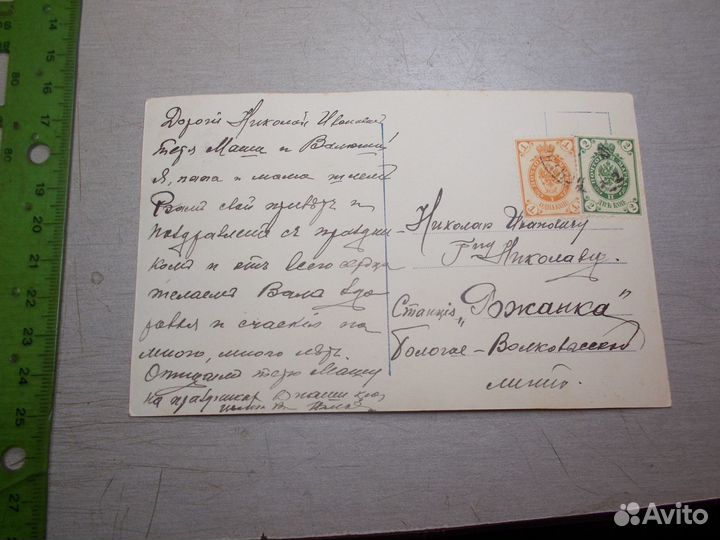 Дорогой Николай Иванович
тетя Маша и Валюша!
Я, папа и мама шлем
Вам свой привѣтъ и
поздравленiе съ праздни-
комъ и отъ всего сердца
желаемъ Вамъ здо
ровья и счастiя на
много, много лѣтъ.
Ожидаемъ тетю Машу
на праздникахъ
Николаю Ивановичу
Гну Николаеву.
Станцiя „Дожанка"
Бологое-Волковысской
линiи.
1 1
ОДНА КОП.
1 1
2 2
ДВѢ КОП.
2 2
14
15
16
17
18
19
20
21
22
23
24
25
26
27
Avito